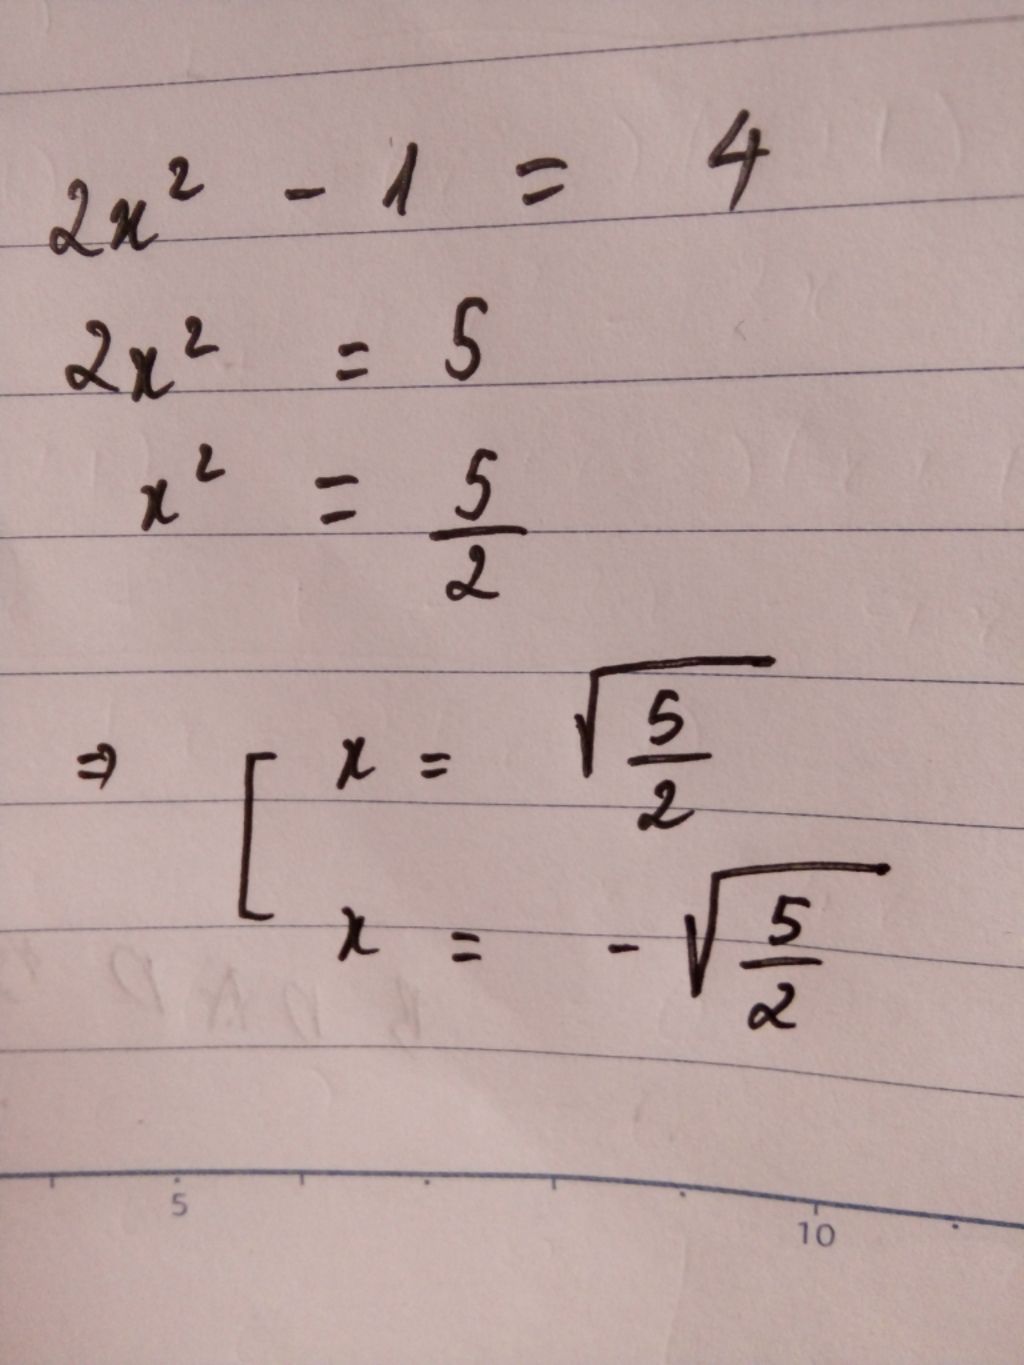 2x² - 1 = 4
2x² = 5
x² = 5/2
⇒ [ x = √(5/2)
x = - √(5/2)
5 10